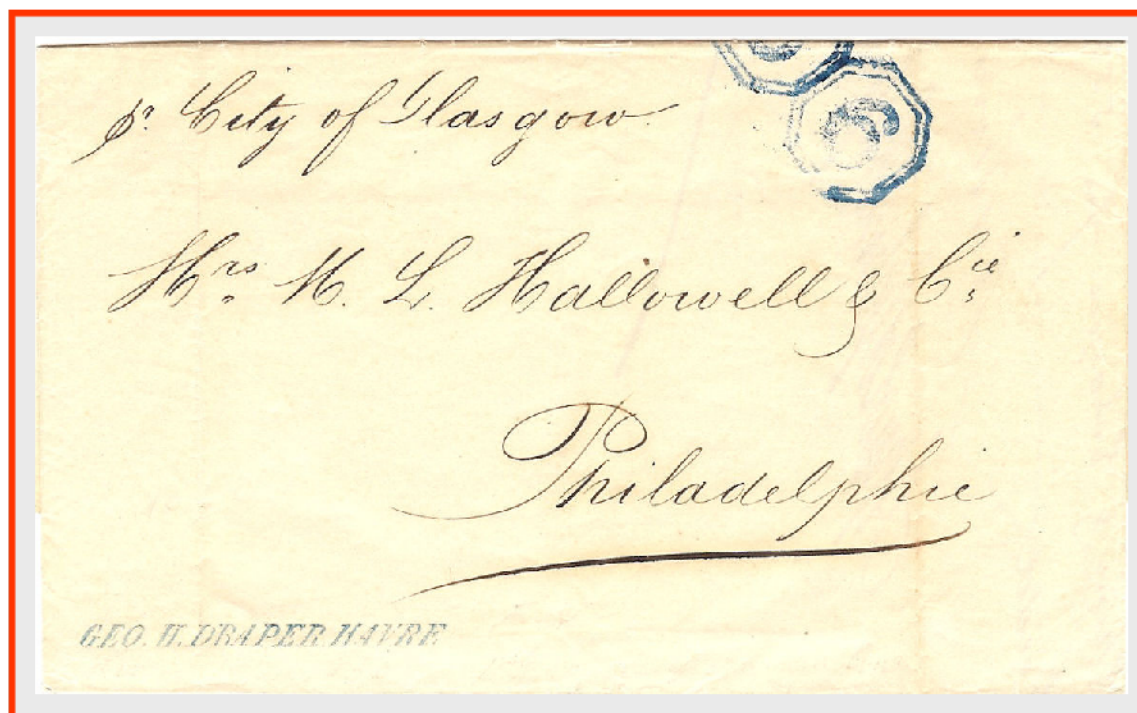 6
pr. City of Glasgow
Mrs. M. L. Hallowell & Cie
Philadelphie
GEO. H. DRAPER HAVRE